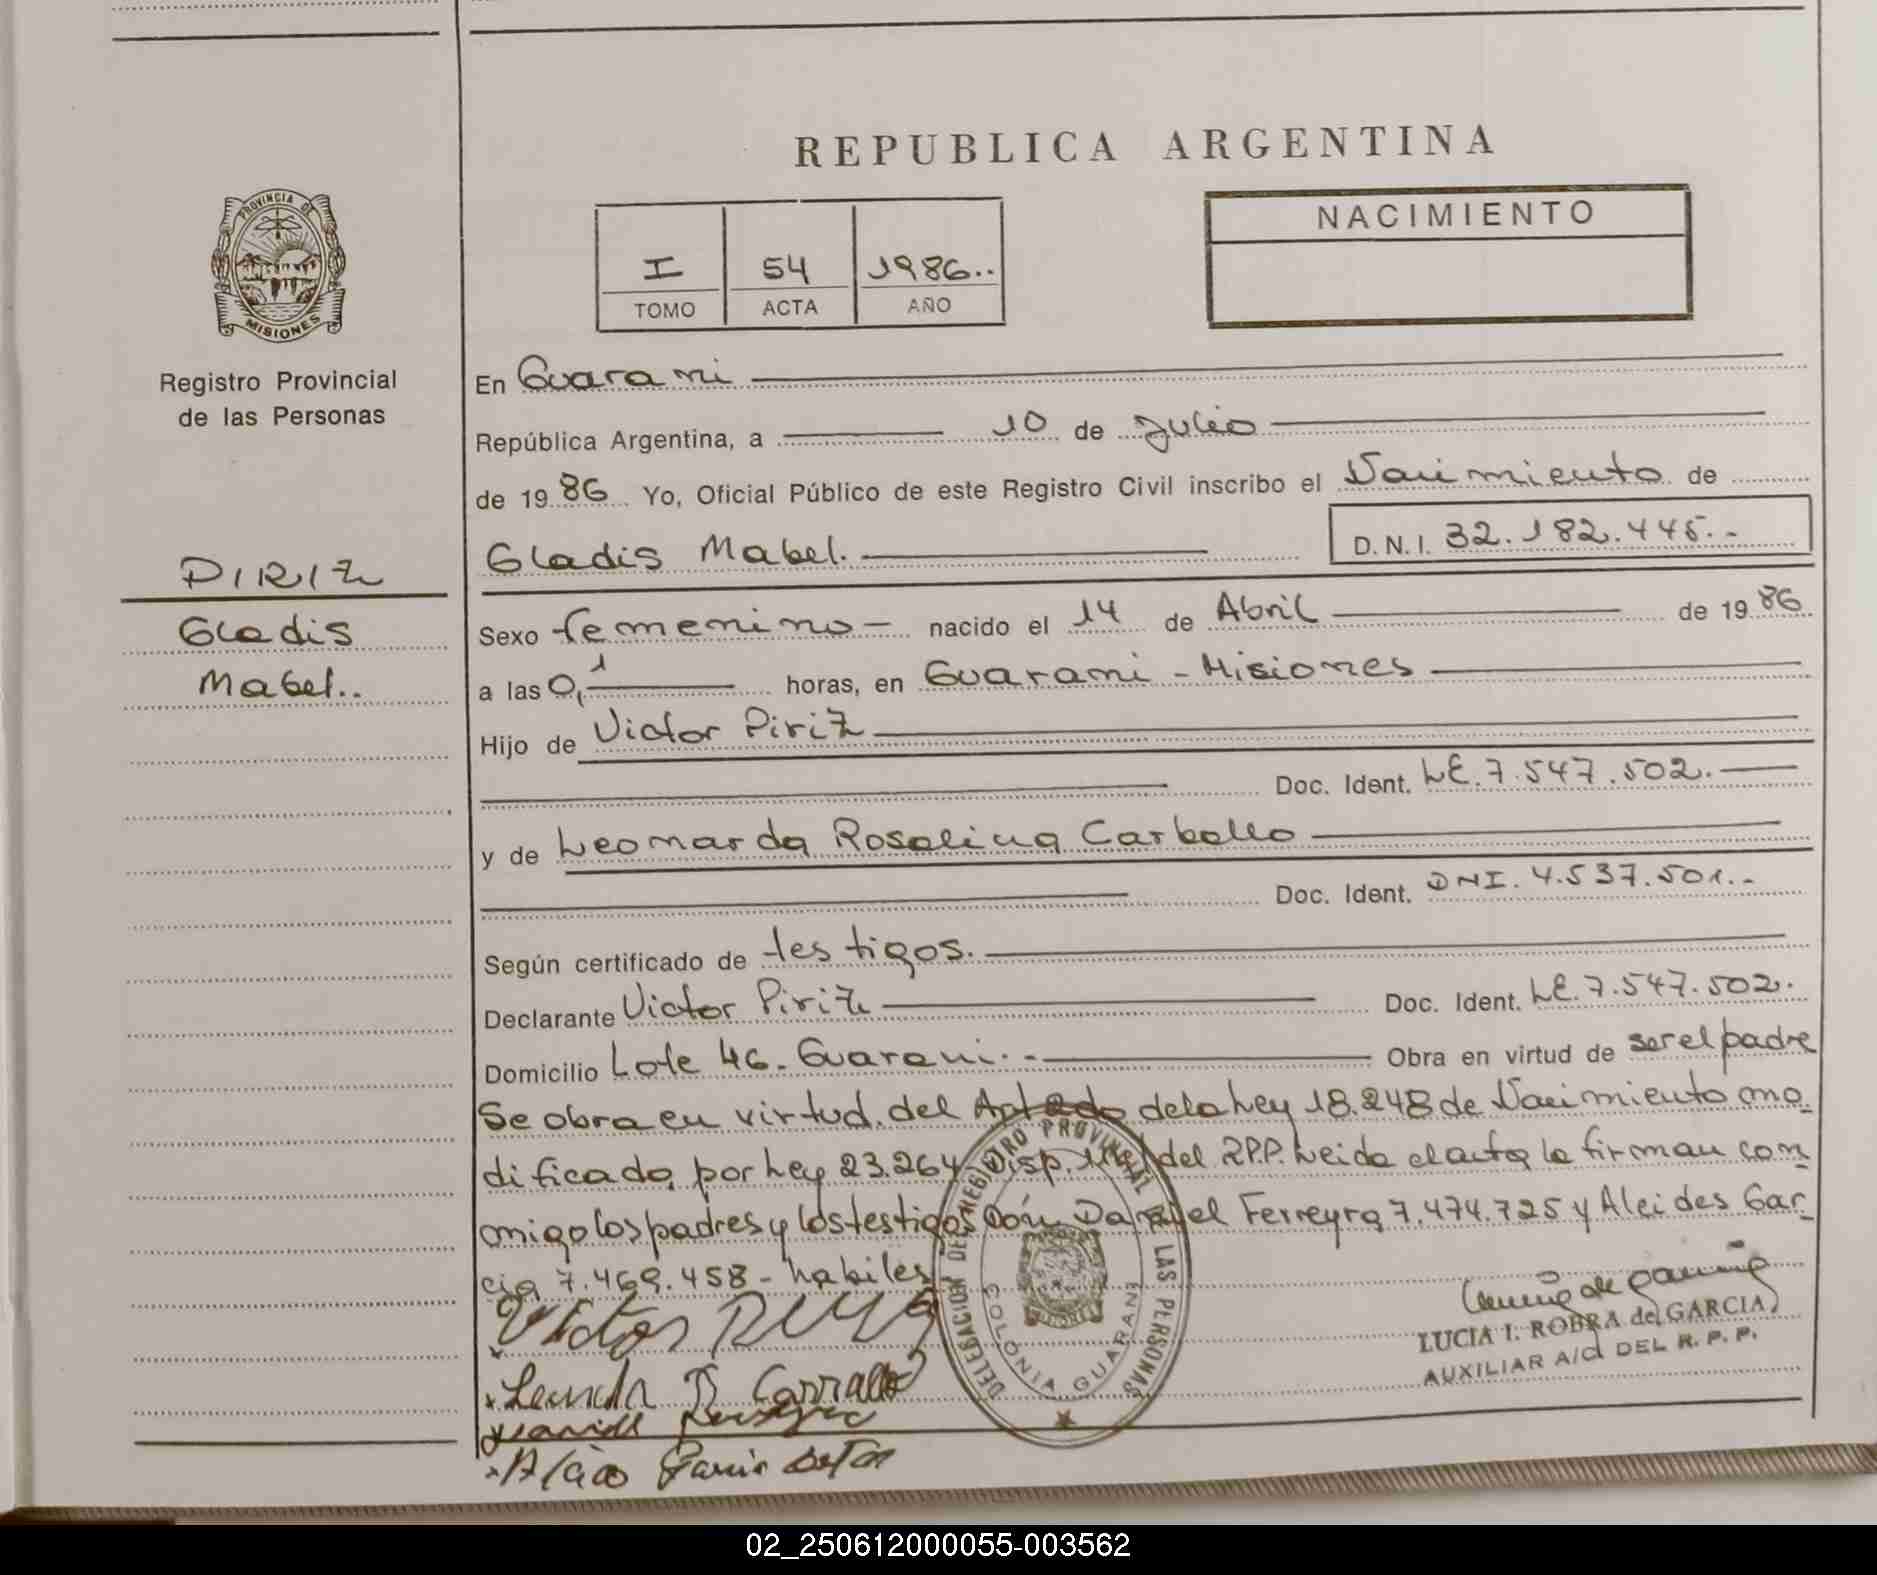 REPUBLICA ARGENTINA
PROVINCIA DE
MISIONES
Registro Provincial
de las Personas
I 54 1986..
TOMO ACTA AÑO
NACIMIENTO
En Guarani
República Argentina, a 10 de Julio
de 1986 Yo, Oficial Público de este Registro Civil inscribo el Nacimiento de
Gladis Mabel. D.N.I. 32.182.445.-
PIRIZ
Gladis
Mabel..
Sexo femenino - nacido el 14 de Abril de 1986
a las 0,1 horas, en Guarani - Misiones
Hijo de Victor Piriz
Doc. Ident. LE. 7.547.502.
y de Leonarda Rosalina Carballo
Doc. Ident. DNI. 4.537.501.-
Según certificado de testigos.
Declarante Victor Piriz Doc. Ident. LE. 7.547.502.
Domicilio Lote 46. Guarani.- Obra en virtud de ser el padre
Se obra en virtud. del de la Ley 18.248 de Nacimiento mo
dificado por Ley 23.264 Disp. del RPP. Leida el acta la firman con
migo los padres y los testigos Don Daniel Ferreyra 7.474.725 y Alcides Gar
cia 7.469.458 - habiles
Victor
Carballo
LUCIA I. ROBRA de GARCIA
AUXILIAR A/C DEL R. P. P.
DELEGACION DEL REGISTRO PROVINCIAL DE LAS PERSONAS
COLONIA GUARANI
02_250612000055-003562